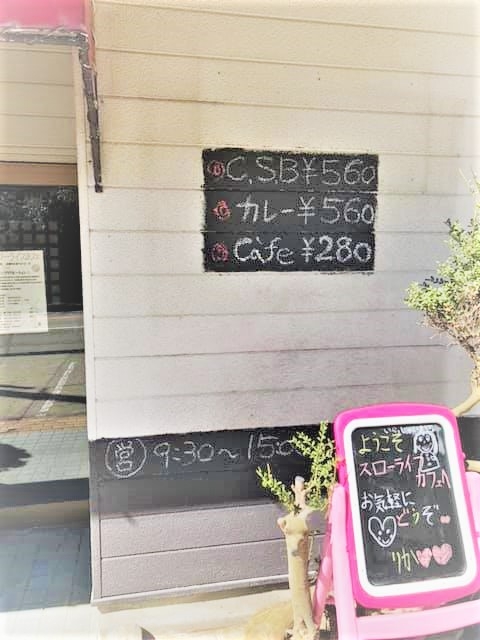 C,S,B¥560
カレー¥560
Càfe ¥280
営 9:30~150
ようこそ
スローライフ
カフェへ
お気軽に
どうぞ
りか